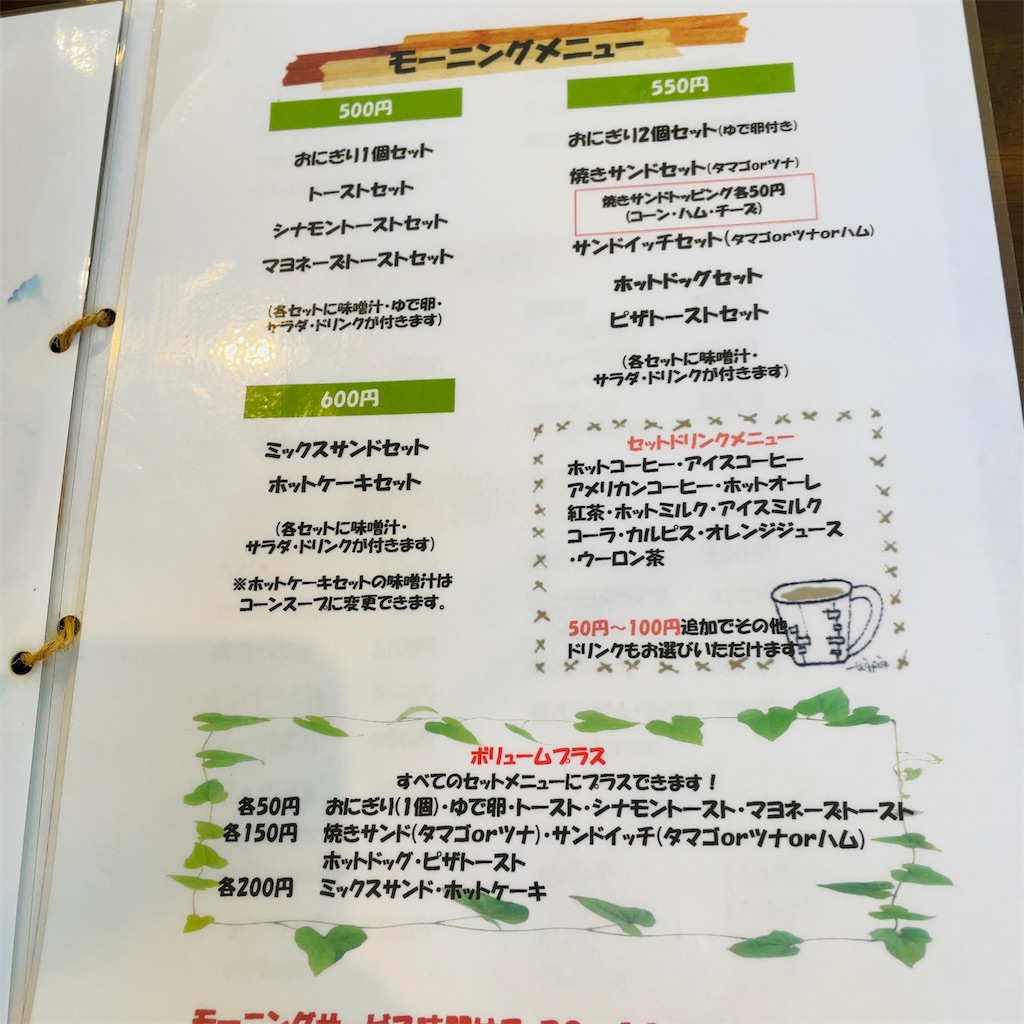 モーニングメニュー
500円
おにぎり1個セット
トーストセット
シナモントーストセット
マヨネーズトーストセット
(各セットに味噌汁・ゆで卵・
サラダ・ドリンクが付きます)
550円
おにぎり2個セット(ゆで卵付き)
焼きサンドセット(タマゴorツナ)
焼きサンドトッピング各50円
(コーン・ハム・チーズ)
サンドイッチセット(タマゴorツナorハム)
ホットドッグセット
ピザトーストセット
(各セットに味噌汁・
サラダ・ドリンクが付きます)
600円
ミックスサンドセット
ホットケーキセット
(各セットに味噌汁・
サラダ・ドリンクが付きます)
※ホットケーキセットの味噌汁は
コーンスープに変更できます。
セットドリンクメニュー
ホットコーヒー・アイスコーヒー
アメリカンコーヒー・ホットオーレ
紅茶・ホットミルク・アイスミルク
コーラ・カルピス・オレンジジュース
・ウーロン茶
50円～100円追加でその他
ドリンクもお選びいただけます
ボリュームプラス
すべてのセットメニューにプラスできます！
各50円 おにぎり(1個)・ゆで卵・トースト・シナモントースト・マヨネーズトースト
各150円 焼きサンド(タマゴorツナ)・サンドイッチ(タマゴorツナorハム)
ホットドッグ・ピザトースト
各200円 ミックスサンド・ホットケーキ
モーニングサービス時間は